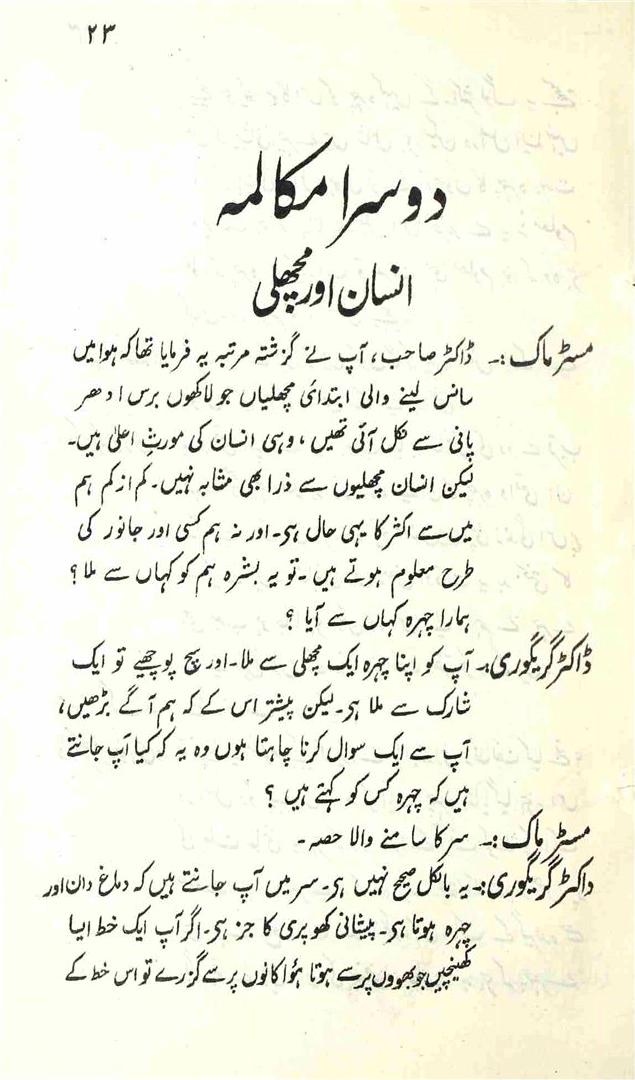 ۲۳
دوسرا مکالمہ
انسان اور مچھلی
مسٹر ماک :۔ ڈاکٹر صاحب، آپ نے گزشتہ مرتبہ یہ فرمایا تھا کہ ہوا میں
سانس لینے والی ابتدائی مچھلیاں جو لاکھوں برس ادھر
پانی سے نکل آئی تھیں، وہی انسان کی مورثِ اعلیٰ ہیں۔
لیکن انسان مچھلیوں سے ذرا بھی مشابہ نہیں۔ کم از کم ہم
میں سے اکثر کا یہی حال ہی۔ اور نہ ہم کسی اور جانور کی
طرح معلوم ہوتے ہیں۔ تو یہ بشرہ ہم کو کہاں سے ملا؟
ہمارا چہرہ کہاں سے آیا ؟
ڈاکٹر گریگوری:۔ آپ کو اپنا چہرہ ایک مچھلی سے ملا۔ اور سچ پوچھیے تو ایک
شارک سے ملا ہی۔ لیکن پیشتر اس کے کہ ہم آگے بڑھیں،
آپ سے ایک سوال کرنا چاہتا ہوں وہ یہ کہ کیا آپ جانتے
ہیں کہ چہرہ کس کو کہتے ہیں ؟
مسٹر ماک :۔ سر کا سامنے والا حصہ ۔
ڈاکٹر گریگوری:۔ یہ بالکل صحیح نہیں ہی۔ سر میں آپ جانتے ہیں کہ دماغ دان اور
چہرہ ہوتا ہی۔ پیشانی کھوپری کا جز ہی۔ اگر آپ ایک خط ایسا
کھینچیں جو بھووں پر سے ہوتا ہؤا کانوں پر سے گزرے تو اس خط کے